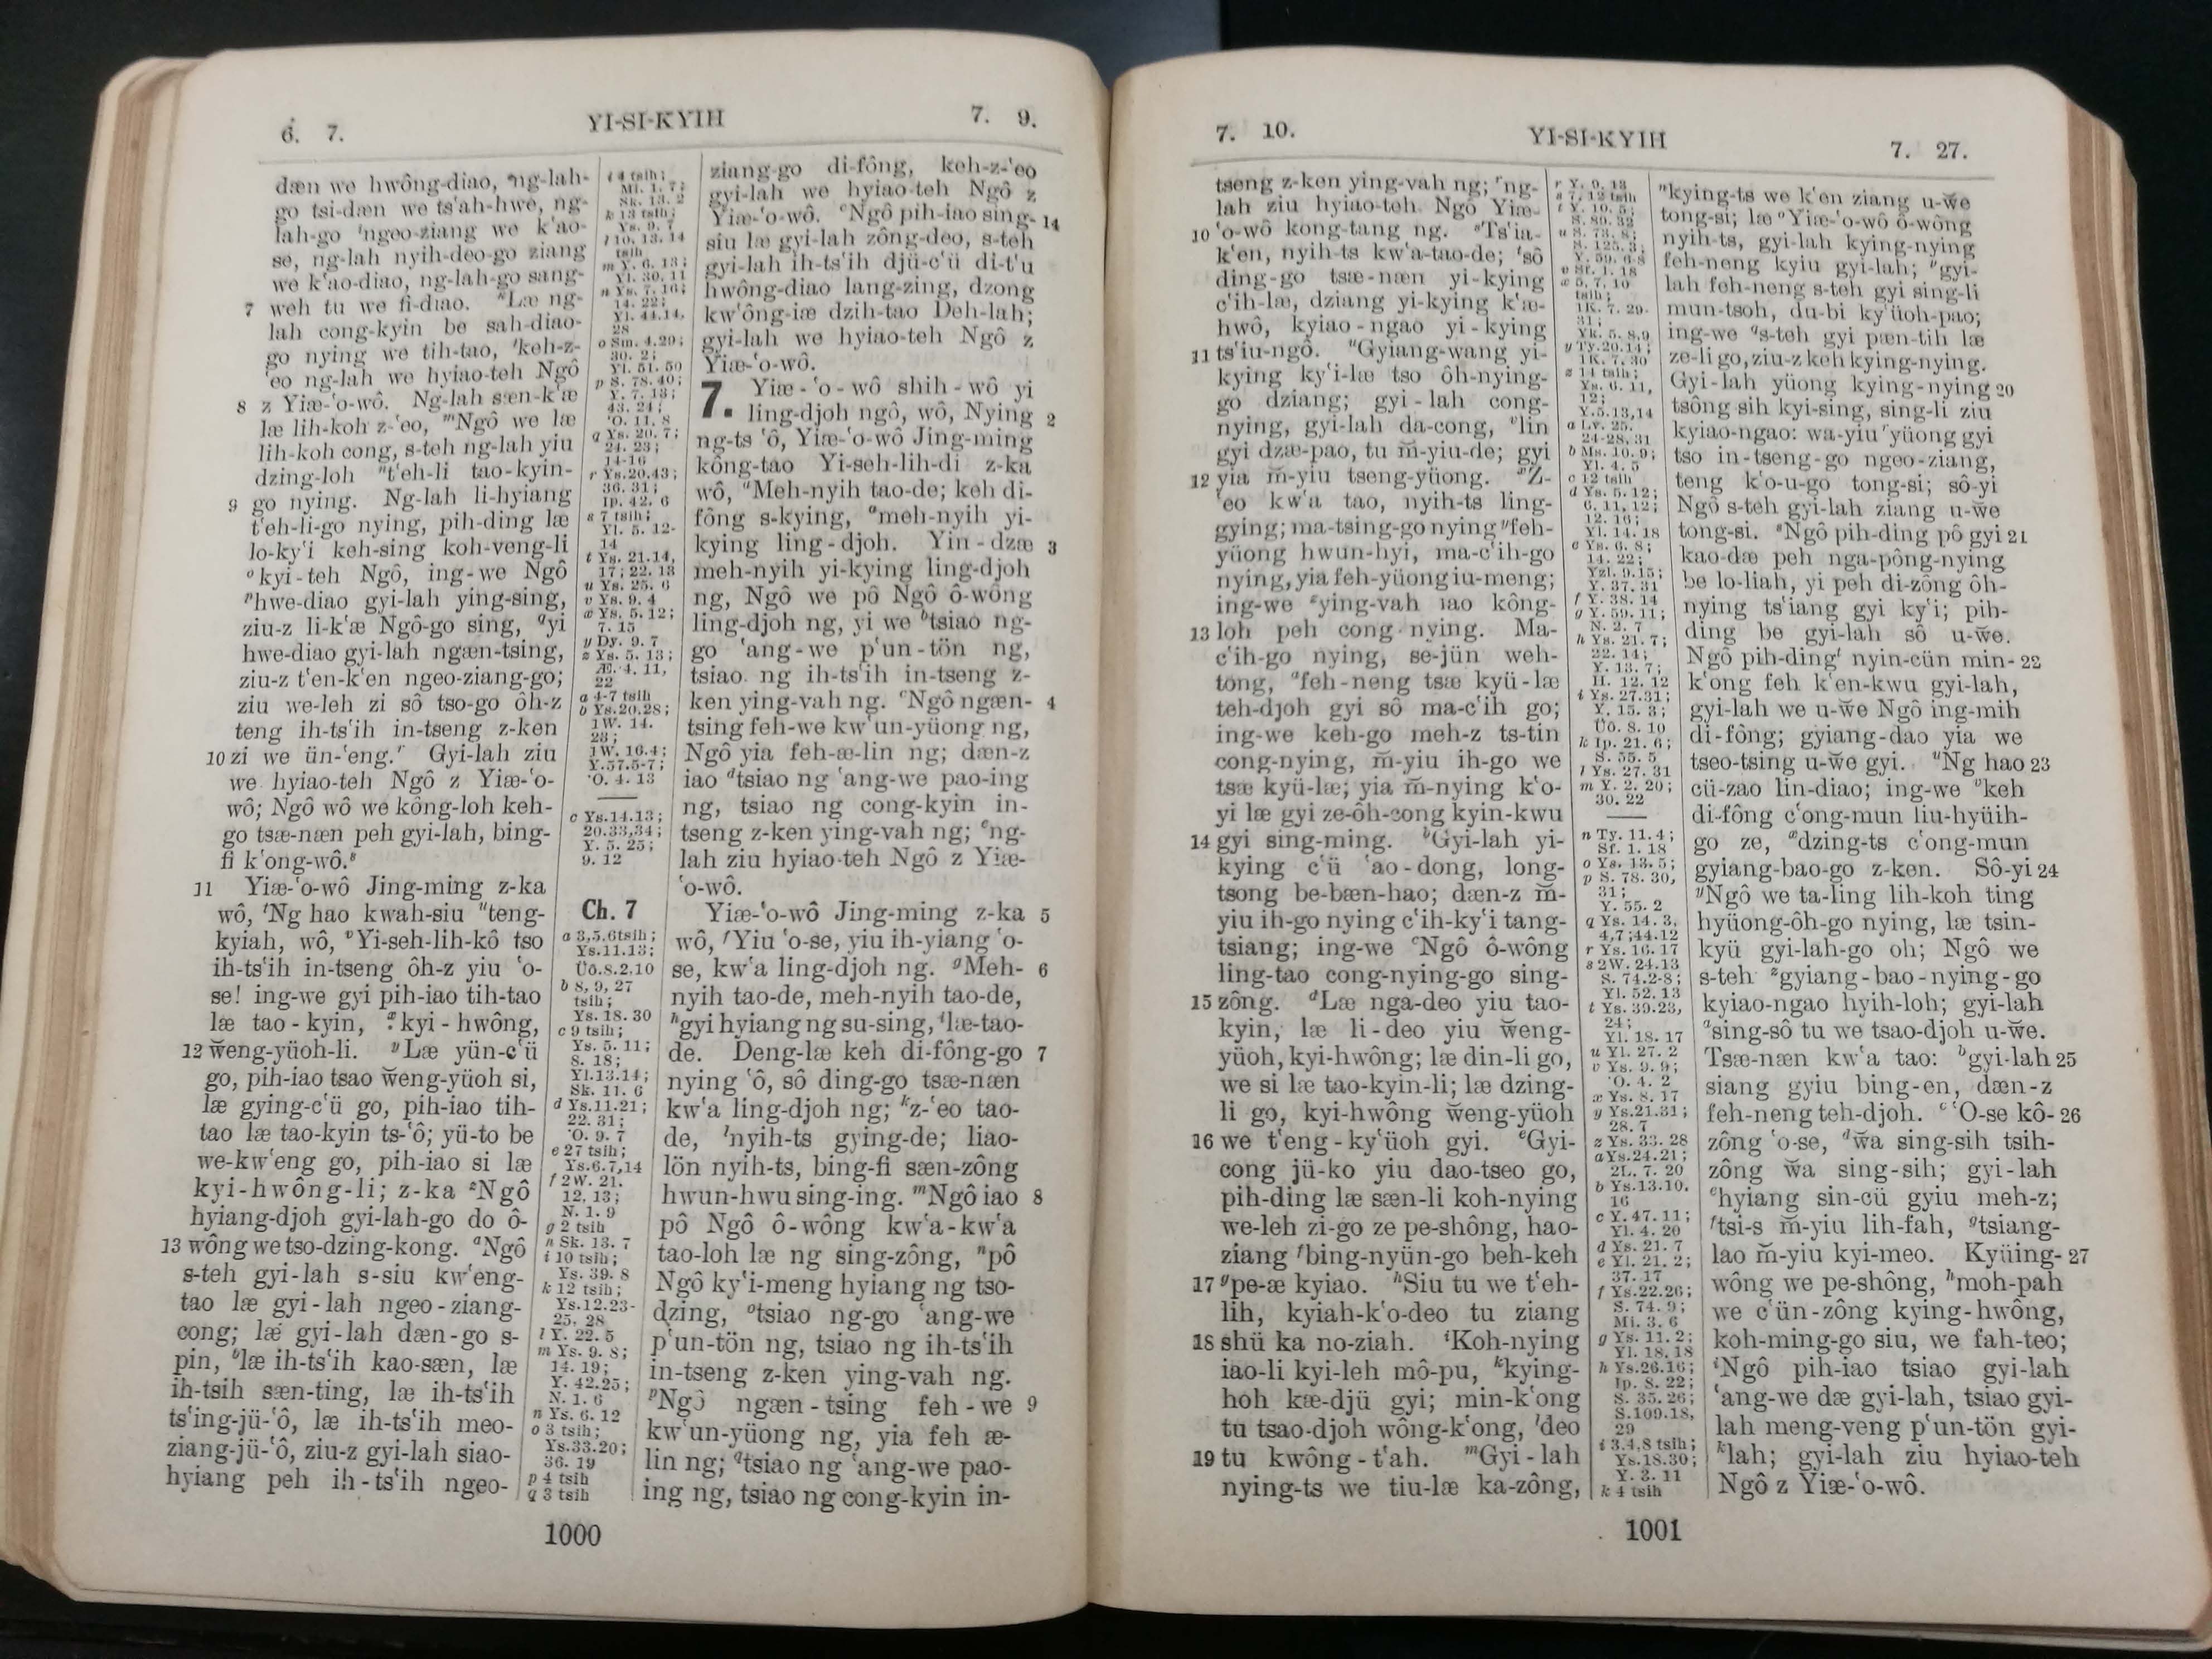 6. 7. YI-SI-KYIH 7. 9.
dæn we hwông-diao, ᵏng-lah-
go tsi-dæn we ts‘ah-hwe, ng-
lah-go ˡngeo-ziang we k‘ao-
se, ng-lah nyih-deo-go ziang
we k‘ao-diao, ng-lah-go sang-
7 weh tu we fi-diao. Læ ng-
lah cong-kyin be sah-diao-
go nying we tih-tao, ˡkeh-z-
‘eo ng-lah we hyiao-teh Ngô
8 z Yiæ-‘o-wô. Ng-lah sæn-k‘æ
læ lih-koh z-‘eo, ᵐNgô we læ
lih-koh cong, s-teh ng-lah yiu
dzing-loh ⁿt‘eh-li tao-kyin-
9 go nying. Ng-lah li-hyiang
t‘eh-li-go nying, pih-ding læ
lo-ky‘i keh-sing koh-veng-li
ᵒkyi-teh Ngô, ing-we Ngô
ᵖhwe-diao gyi-lah ying-sing,
ziu-z li-k‘æ Ngô-go sing, ᑫyi
hwe-diao gyi-lah ngæn-tsing,
ziu-z t‘en-k‘en ngeo-ziang-go;
ziu we-leh zi sô tso-go ôh-z
teng ih-ts‘ih in-tseng z-ken
10 zi we ün-‘eng.ʳ Gyi-lah ziu
we hyiao-teh Ngô z Yiæ-‘o-
wô; Ngô wô we kông-loh keh-
go tsæ-næn peh gyi-lah, bing-
fi k‘ong-wô.ˢ
11 Yiæ-‘o-wô Jing-ming z-ka
wô, ᵗNg hao kwah-siu ᵘteng-
kyiah, wô, ᵛYi-seh-lih-kô tso
ih-ts‘ih in-tseng ôh-z yiu ‘o-
se! ing-we gyi pih-iao tih-tao
læ tao-kyin, ˣkyi-hwông,
12 w̆eng-yüoh-li. ʸLæ yün-c‘ü
go, pih-iao tsao w̆eng-yüoh si,
læ gying-c‘ü go, pih-iao tih-
tao læ tao-kyin ts-‘ô; yü-to be
we-kw‘eng go, pih-iao si læ
kyi-hwông-li; z-ka ᶻNgô
hyiang-djoh gyi-lah-go do ô-
13 wông we tso-dzing-kong. ᵃNgô
s-teh gyi-lah s-siu kw‘eng-
tao læ gyi-lah ngeo-ziang-
cong; læ gyi-lah dæn-go s-
pin, ᵇlæ ih-ts‘ih kao-sæn, læ
ih-tsih sæn-ting, læ ih-ts‘ih
ts‘ing-jü-‘ô, læ ih-ts‘ih meo-
ziang-jü-‘ô, ziu-z gyi-lah siao-
hyiang peh ih-ts‘ih ngeo-
i 4 tsih;
Mi. 1. 7;
Sk. 13. 2
k 13 tsih;
Ys. 9. 7
l 10, 13, 14
tsih
m Y. 6. 13;
Yl. 30. 11
n Ys. 7. 16;
14. 22;
Yl. 44.14,
28
o Sm. 4.29;
30. 2;
Yl. 51. 50
p S. 78. 40;
Y. 7. 13;
43. 24;
‘O. 11. 8
q Ys. 20. 7;
24. 23;
14-16
r Ys.20.43;
36. 31;
Ip. 42. 6
s 7 tsih;
Yl. 5. 12-
14
t Ys. 21.14,
17; 22. 13
u Ys. 25. 6
v Ys. 9. 4
x Ys. 5. 12;
7. 15
y Dy. 9. 7
z Ys. 5. 13;
Æ. 4. 11,
22
a 4-7 tsih
b Ys.20.28;
1W. 14.
23;
1W. 16.4;
Y.57.5-7;
‘O. 4. 13
c Ys.14.13;
20.33,34;
Y. 5. 25;
9. 12
Ch. 7
a 3,5,6tsih;
Ys.11.13;
Üô.8.2,10
b 8, 9, 27
tsih;
Ys. 18. 30
c 9 tsih;
Ys. 5. 11;
8. 18;
Yl.13.14;
Sk. 11. 6
d Ys.11.21;
22. 31;
‘O. 9. 7
e 27 tsih;
Ys.6.7,14
f 2W. 21.
12, 13;
N. 1. 9
g 2 tsih
h Sk. 13. 7
i 10 tsih;
Ys. 39. 8
k 12 tsih;
Ys.12.23-
25, 28
l Y. 22. 5
m Ys. 9. 8;
14. 19;
Y. 42.25;
N. 1. 6
n Ys. 6. 12
o 3 tsih;
Ys.33.20;
36. 19
p 4 tsih
q 3 tsih
ziang-go di-fông, keh-z-‘eo
gyi-lah we hyiao-teh Ngô z
Yiæ-‘o-wô. ᶜNgô pih-iao sing- 14
siu læ gyi-lah zông-deo, s-teh
gyi-lah ih-ts‘ih djü-c‘ü di-t‘u
hwông-diao lang-zing, dzong
kw‘ông-iæ dzih-tao Deh-lah;
gyi-lah we hyiao-teh Ngô z
Yiæ-‘o-wô.
7. Yiæ-‘o-wô shih-wô yi
ling-djoh ngô, wô, Nying 2
ng-ts ‘ô, Yiæ-‘o-wô Jing-ming
kông-tao Yi-seh-lih-di z-ka
wô, ᵃMeh-nyih tao-de; keh di-
fông s-kying, ᵃmeh-nyih yi-
kying ling-djoh. Yin-dzæ 3
meh-nyih yi-kying ling-djoh
ng, Ngô we pô Ngô ô-wông
ling-djoh ng, yi we ᵇtsiao ng-
go ‘ang-we p‘un-tön ng,
tsiao ng ih-ts‘ih in-tseng z-
ken ying-vah ng. ᶜNgô ngæn- 4
tsing feh-we kw‘un-yüong ng,
Ngô yia feh-æ-lin ng; dæn-z
iao ᵈtsiao ng ‘ang-we pao-ing
ng, tsiao ng cong-kyin in-
tseng z-ken ying-vah ng; ᵉng-
lah ziu hyiao-teh Ngô z Yiæ-
‘o-wô.
Yiæ-‘o-wô Jing-ming z-ka 5
wô, ᶠYiu ‘o-se, yiu ih-yiang ‘o-
se, kw‘a ling-djoh ng. ᵍMeh- 6
nyih tao-de, meh-nyih tao-de,
ʰgyi hyiang ng su-sing, ⁱlæ-tao-
de. Deng-læ keh di-fông-go 7
nying ‘ô, sô ding-go tsæ-næn
kw‘a ling-djoh ng; ᵏz-‘eo tao-
de, ˡnyih-ts gying-de; liao-
lön nyih-ts, bing-fi sæn-zông
hwun-hwu sing-ing. ᵐNgô iao 8
pô Ngô ô-wông kw‘a-kw‘a
tao-loh læ ng sing-zông, ⁿpô
Ngô ky‘i-meng hyiang ng tso-
dzing, ᵒtsiao ng-go ‘ang-we
p‘un-tön ng, tsiao ng ih-ts‘ih
in-tseng z-ken ying-vah ng.
ᵖNgô ngæn-tsing feh-we 9
kw‘un-yüong ng, yia feh æ-
lin ng; ᑫtsiao ng ‘ang-we pao-
ing ng, tsiao ng cong-kyin in-
1000
7. 10. YI-SI-KYIH 7. 27.
tseng z-ken ying-vah ng; ʳng-
lah ziu hyiao-teh Ngô Yiæ-
10 ‘o-wô kong-tang ng. ˢTs‘ia-
k‘en, nyih-ts kw‘a-tao-de; ᵗsô
ding-go tsæ-næn yi-kying
c‘ih-læ, dziang yi-kying k‘æ-
hwô, kyiao-ngao yi-kying
11 ts‘iu-ngô. ᵘGyiang-wang yi-
kying ky‘i-læ tso ôh-nying-
go dziang; gyi-lah cong-
nying, gyi-lah da-cong, ᵛlin
gyi dzæ-pao, tu m̆-yiu-de; gyi
12 yia m̆-yiu tseng-yüong. ˣZ-
‘eo kw‘a tao, nyih-ts ling-
gying; ma-tsing-go nying ʸfeh-
yüong hwun-hyi, ma-c‘ih-go
nying, yia feh-yüong iu-meng;
ing-we ᶻying-vah iao kông-
13 loh peh cong-nying. Ma-
c‘ih-go nying, se-jün weh-
tong, ᵃfeh-neng tsæ kyü-læ
teh-djoh gyi sô ma-c‘ih go;
ing-we keh-go meh-z ts-tin
cong-nying, m̆-yiu ih-go we
tsæ kyü-læ; yia m̆-nying k‘o-
yi læ gyi ze-ôh-cong kyin-kwu
14 gyi sing-ming. ᵇGyi-lah yi-
kying c‘ü ‘ao-dong, long-
tsong be-bæn-hao; dæn-z m̆-
yiu ih-go nying c‘ih-ky‘i tang-
tsiang; ing-we ᶜNgô ô-wông
ling-tao cong-nying-go sing-
15 zông. ᵈLæ nga-deo yiu tao-
kyin, læ li-deo yiu w̆eng-
yüoh, kyi-hwông; læ din-li go,
we si læ tao-kyin-li; læ dzing-
li go, kyi-hwông w̆eng-yüoh
16 we t‘eng-ky‘üoh gyi. ᵉGyi-
cong jü-ko yiu dao-tseo go,
pih-ding læ sæn-li koh-nying
we-leh zi-go ze pe-shông, hao-
ziang ᶠbing-nyün-go beh-keh
17 ᵍpe-æ kyiao. ʰSiu tu we t‘eh-
lih, kyiah-k‘o-deo tu ziang
18 shü ka no-ziah. ⁱKoh-nying
iao-li kyi-leh mô-pu, ᵏkying-
hoh kæ-djü gyi; min-k‘ong
tu tsao-djoh wông-k‘ong, ˡdeo
19 tu kwông-t‘ah. ᵐGyi-lah
nying-ts we tiu-læ ka-zông,
r Y. 9. 13
s 7, 12 tsih
t Y. 10. 5;
S. 89. 32
u S. 73. 8;
S. 125. 3;
Y. 59. 6-8
v Sf. 1. 18
x 5, 7, 10
tsih;
1K. 7. 29-
31;
Yk. 5. 8,9
y Ty.20.14;
1K. 7. 30
z 14 tsih;
Ys. 6. 11,
12;
Y.5.13,14
a Lv. 25.
24-28, 31
b Ms. 10. 9;
Yl. 4. 5
c 12 tsih
d Ys. 5. 12;
6. 11, 12;
12. 16;
Yl. 14. 18
e Ys. 6. 8;
14. 22;
Yzl. 9.15;
Y. 37. 31
f Y. 38. 14
g Y. 59. 11;
N. 2. 7
h Ys. 21. 7;
22. 14;
Y. 13. 7;
H. 12. 12
i Ys. 27.31;
Y. 15. 3;
Üô. 8. 10
k Ip. 21. 6;
S. 55. 5
l Ys. 27. 31
m Y. 2. 20;
30. 22
n Ty. 11. 4;
Sf. 1. 18
o Ys. 13. 5;
p S. 78. 30,
31;
Y. 55. 2
q Ys. 14. 3,
4,7;44.12
r Ys. 16. 17
s 2W. 24.13
S. 74.2-8;
Yl. 52. 13
t Ys. 39.23,
24;
Yl. 18. 17
u Yl. 27. 2
v Ys. 9. 9;
‘O. 4. 2
x Ys. 8. 17
y Ys.21.31;
28. 7
z Ys. 33. 28
a Ys.24.21;
2L. 7. 20
b Ys.13.10,
16
c Y. 47. 11;
Yl. 4. 20
d Ys. 21. 7
e Yl. 21. 2;
37. 17
f Ys.22.26;
S. 74. 9;
Mi. 3. 6
g Ys. 11. 2;
Yl. 18. 18
h Ys.26.16;
Ip. 8. 22;
S. 35. 26;
S.109.18,
29
i 3,4,8 tsih;
Ys.18.30;
Y. 3. 11
k 4 tsih
ⁿkying-ts we k‘en ziang u-w̆e
tong-si; læ ᵒYiæ-‘o-wô ô-wông
nyih-ts, gyi-lah kying-nying
feh-neng kyiu gyi-lah; ᵖgyi-
lah feh-neng s-teh gyi sing-li
mun-tsoh, du-bi ky‘üoh-pao;
ing-we ᑫs-teh gyi pæn-tih læ
ze-li go, ziu-z keh kying-nying.
Gyi-lah yüong kying-nying 20
tsông sih kyi-sing, sing-li ziu
kyiao-ngao: wa-yiu ʳyüong gyi
tso in-tseng-go ngeo-ziang,
teng k‘o-u-go tong-si; sô-yi
Ngô s-teh gyi-lah ziang u-w̆e
tong-si. ˢNgô pih-ding pô gyi 21
kao-dæ peh nga-pông-nying
be lo-liah, yi peh di-zông ôh-
nying ts‘iang gyi ky‘i; pih-
ding be gyi-lah sô u-w̆e.
Ngô pih-dingᵗ nyin-cün min- 22
k‘ong feh k‘en-kwu gyi-lah,
gyi-lah we u-w̆e Ngô ing-mih
di-fông; gyiang-dao yia we
tseo-tsing u-w̆e gyi. ᵘNg hao 23
cü-zao lin-diao; ing-we ᵛkeh
di-fông c‘ong-mun liu-hyüih-
go ze, ˣdzing-ts c‘ong-mun
gyiang-bao-go z-ken. Sô-yi 24
ʸNgô we ta-ling lih-koh ting
hyüong-ôh-go nying, læ tsin-
kyü gyi-lah-go oh; Ngô we
s-teh ᶻgyiang-bao-nying-go
kyiao-ngao hyih-loh; gyi-lah
ᵃsing-sô tu we tsao-djoh u-w̆e.
Tsæ-næn kw‘a tao: ᵇgyi-lah 25
siang gyiu bing-en, dæn-z
feh-neng teh-djoh. ᶜ‘O-se kô- 26
zông ‘o-se, ᵈw̆a sing-sih tsih-
zông w̆a sing-sih; gyi-lah
ᵉhyiang sin-cü gyiu meh-z;
ᶠtsi-s m̆-yiu lih-fah, ᵍtsiang-
lao m̆-yiu kyi-meo. Kyüing- 27
wông we pe-shông, ʰmoh-pah
we c‘ün-zông kying-hwông,
koh-ming-go siu, we fah-teo;
ⁱNgô pih-iao tsiao gyi-lah
‘ang-we dæ gyi-lah, tsiao gyi-
lah meng-veng p‘un-tön gyi-
ᵏlah; gyi-lah ziu hyiao-teh
Ngô z Yiæ-‘o-wô.
1001